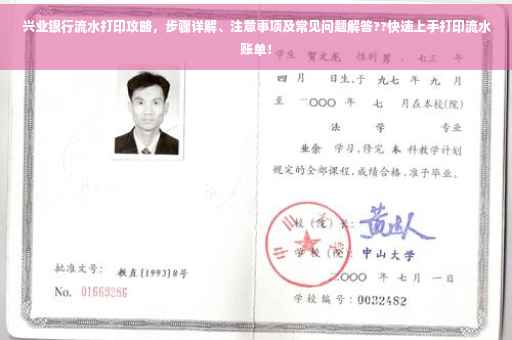 兴业银行流水打印攻略，步骤详解、注意事项及常见问题解答??快速上手打印流水
账单！
学生 贺文龙 性别 男，七三 年
四 月 日生,于 九七 年 九 月
至 二〇〇〇 年 七 月在本校(院)
法 学 专业
业余 学习,修完 本 科教学计划
规定的全部课程,成绩合格,准予毕业。
校(院)长:
学 校(院): 中山大学
二〇〇〇 年 七 月 一 日
学校编号: 0032482
批准文号: 教直(1993)8号
No. 01669286